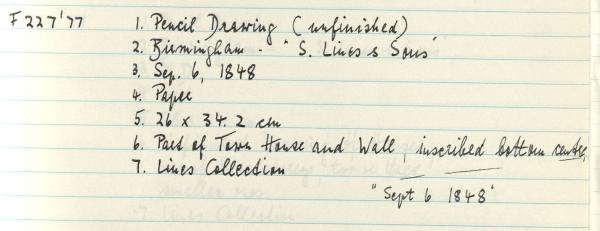 F 227'77
1. Pencil Drawing (unfinished)
2. Birmingham - "S. Lines & Sons"
3. Sep. 6, 1848
4. Paper
5. 26 x 34.2 cm
6. Part of Town House and Wall, inscribed bottom centre,
7. Lines Collection
"Sept 6 1848"
smaller
7. Lines Collection